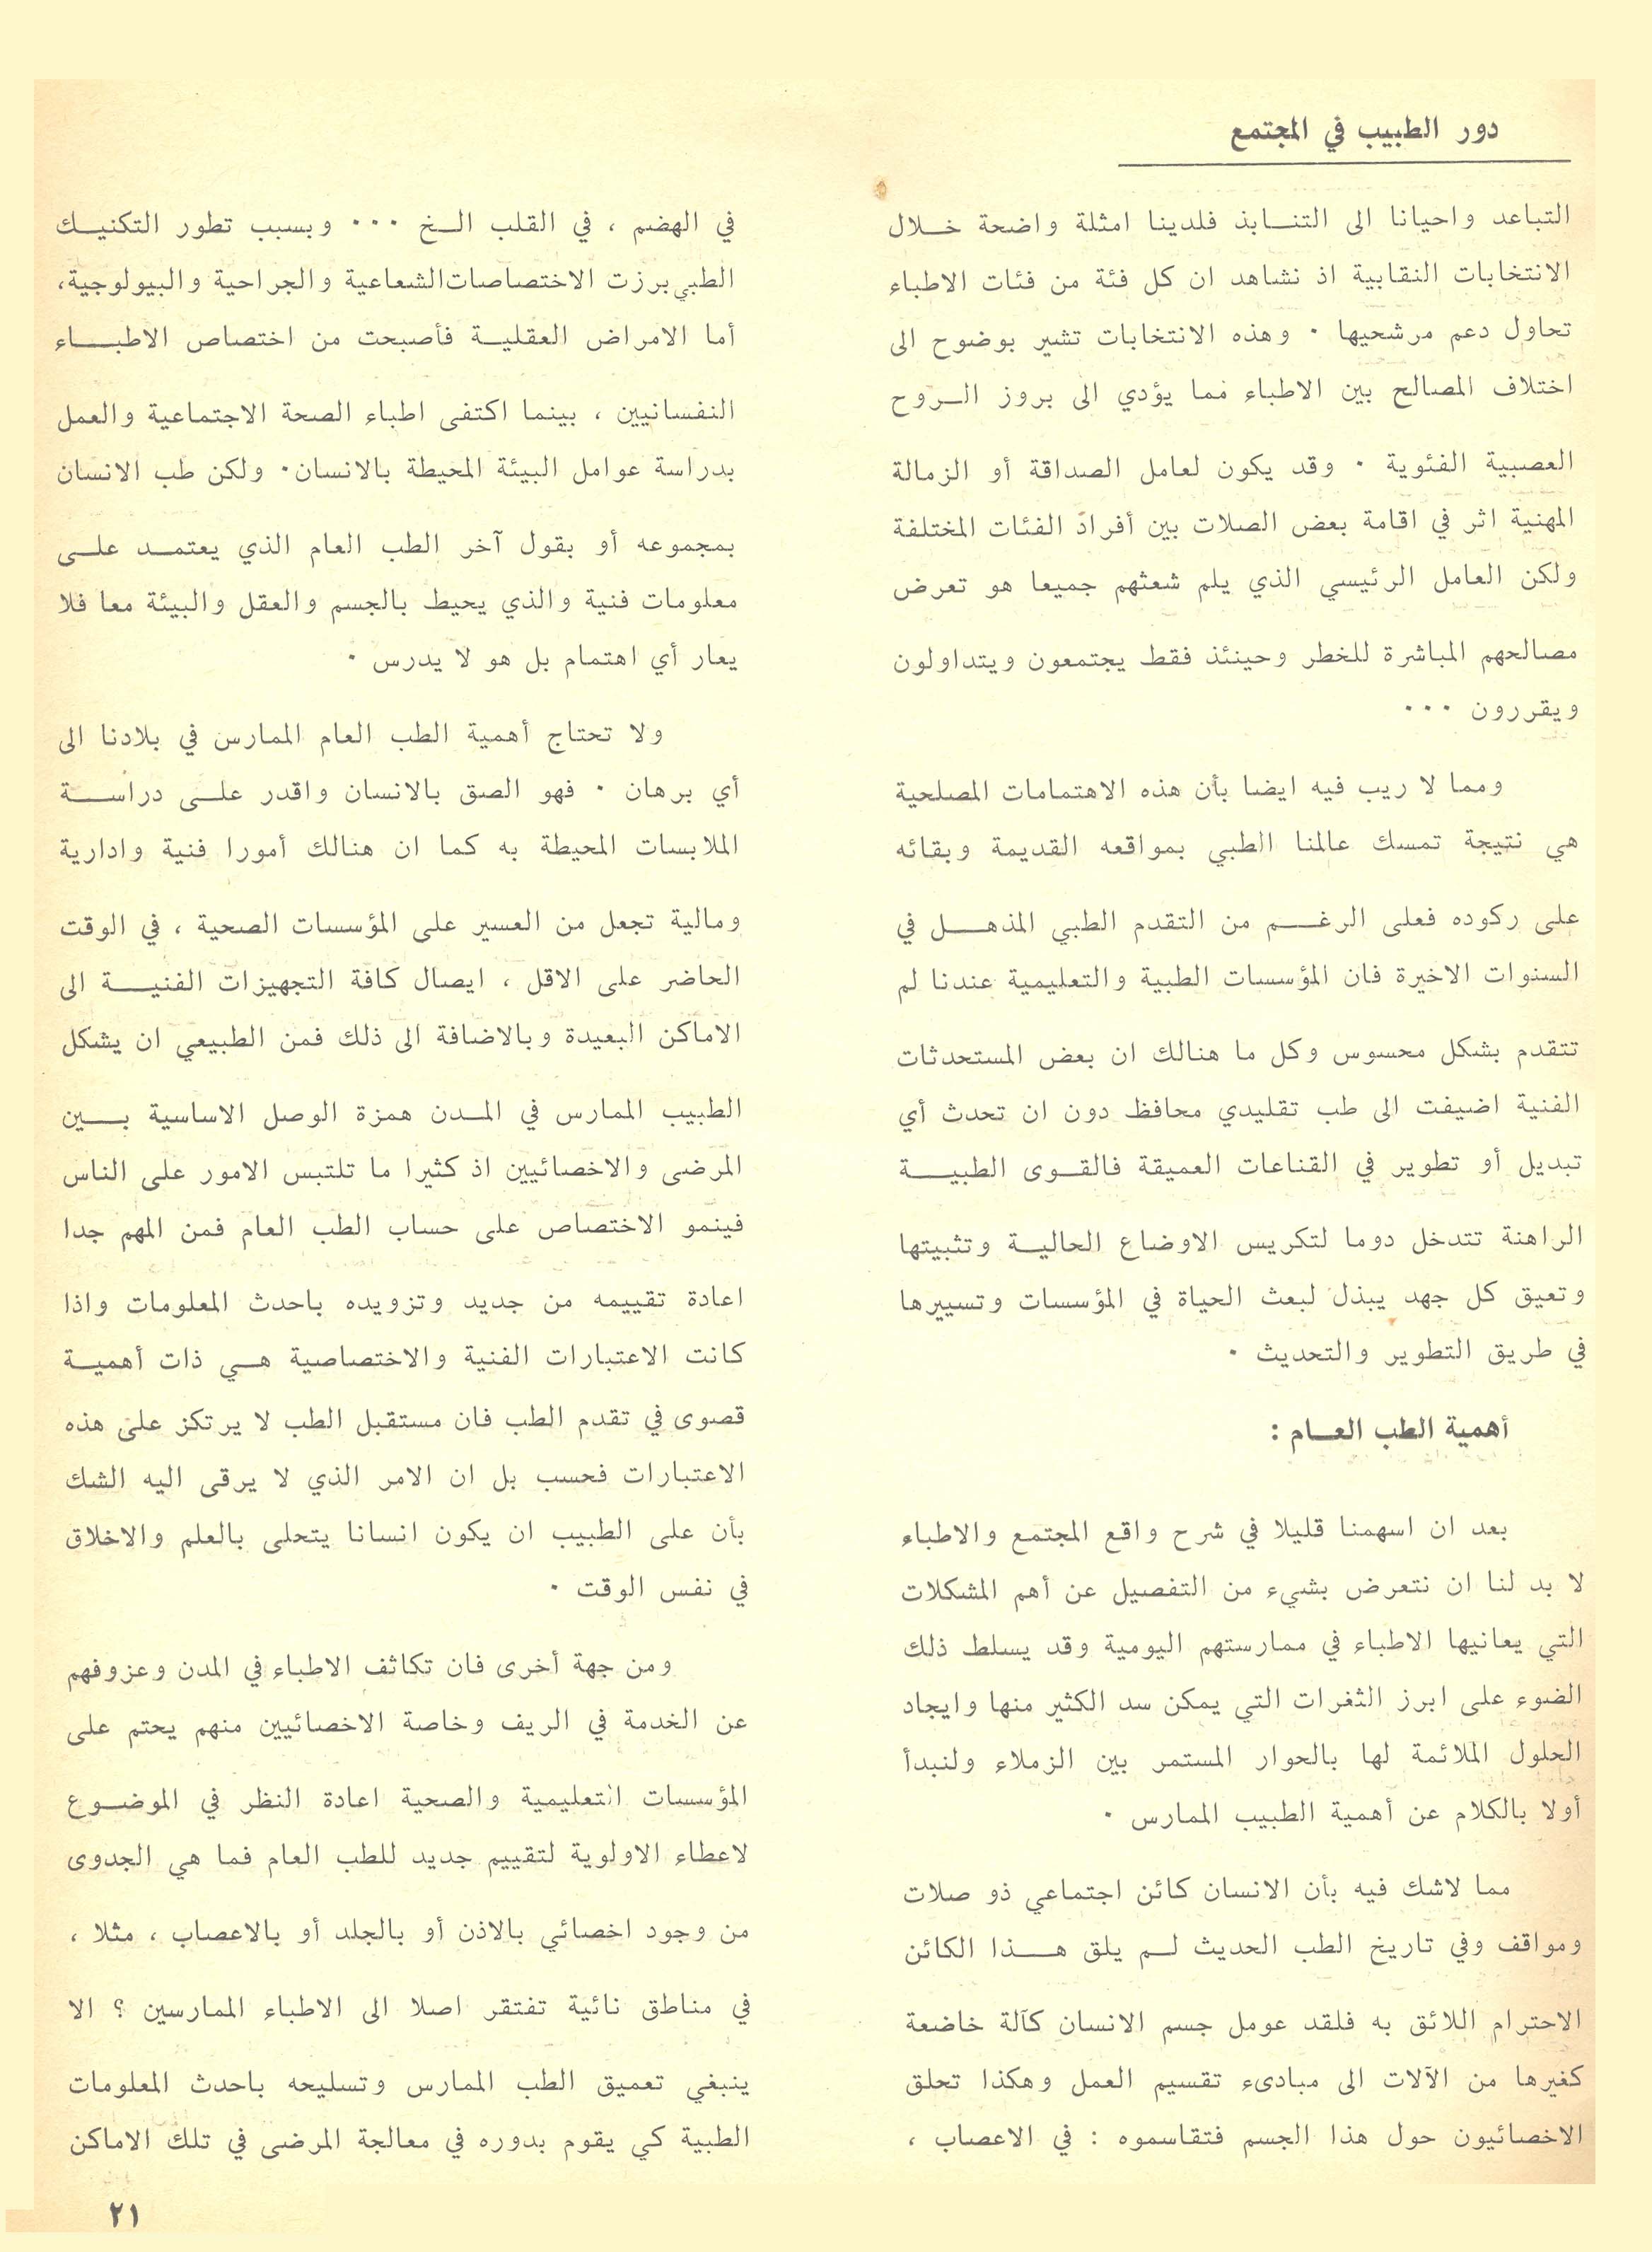 دور الطبيب في المجتمع
التباعد واحيانا الى التنابذ فلدينا امثلة واضحة خلال
الانتخابات النقابية اذ نشاهد ان كل فئة من فئات الاطباء
تحاول دعم مرشحيها ٠ وهذه الانتخابات تشير بوضوح الى
اختلاف المصالح بين الاطباء مما يؤدي الى بروز الروح
العصبية الفئوية ٠ وقد يكون لعامل الصداقة أو الزمالة
المهنية اثر في اقامة بعض الصلات بين أفراد الفئات المختلفة
ولكن العامل الرئيسي الذي يلم شعثهم جميعا هو تعرض
مصالحهم المباشرة للخطر وحينئذ فقط يجتمعون ويتداولون
ويقررون ٠٠٠
ومما لا ريب فيه ايضا بأن هذه الاهتمامات المصلحية
هي نتيجة تمسك عالمنا الطبي بمواقعه القديمة وبقائه
على ركوده فعلى الرغم من التقدم الطبي المذهل في
السنوات الاخيرة فان المؤسسات الطبية والتعليمية عندنا لم
تتقدم بشكل محسوس وكل ما هنالك ان بعض المستحدثات
الفنية اضيفت الى طب تقليدي محافظ دون ان تحدث أي
تبديل أو تطوير في القناعات العميقة فالقوى الطبية
الراهنة تتدخل دوما لتكريس الاوضاع الحالية وتثبيتها
وتعيق كل جهد يبذل لبعث الحياة في المؤسسات وتسييرها
في طريق التطوير والتحديث ٠
أهمية الطب العام :
بعد ان اسهمنا قليلا في شرح واقع المجتمع والاطباء
لا بد لنا ان نتعرض بشيء من التفصيل عن أهم المشكلات
التي يعانيها الاطباء في ممارستهم اليومية وقد يسلط ذلك
الضوء على ابرز الثغرات التي يمكن سد الكثير منها وايجاد
الحلول الملائمة لها بالحوار المستمر بين الزملاء ولنبدأ
أولا بالكلام عن أهمية الطبيب الممارس ٠
مما لاشك فيه بأن الانسان كائن اجتماعي ذو صلات
ومواقف وفي تاريخ الطب الحديث لم يلق هذا الكائن
الاحترام اللائق به فلقد عومل جسم الانسان كآلة خاضعة
كغيرها من الآلات الى مبادىء تقسيم العمل وهكذا تحلق
الاخصائيون حول هذا الجسم فتقاسموه : في الاعصاب ،
في الهضم ، في القلب الخ ٠٠٠ وبسبب تطور التكنيك
الطبي برزت الاختصاصات الشعاعية والجراحية والبيولوجية،
أما الامراض العقلية فأصبحت من اختصاص الاطباء
النفسانيين ، بينما اكتفى اطباء الصحة الاجتماعية والعمل
بدراسة عوامل البيئة المحيطة بالانسان٠ ولكن طب الانسان
بمجموعه أو بقول آخر الطب العام الذي يعتمد على
معلومات فنية والذي يحيط بالجسم والعقل والبيئة معا فلا
يعار أي اهتمام بل هو لا يدرس ٠
ولا تحتاج أهمية الطب العام الممارس في بلادنا الى
أي برهان ٠ فهو الصق بالانسان واقدر على دراسة
الملابسات المحيطة به كما ان هنالك أمورا فنية وادارية
ومالية تجعل من العسير على المؤسسات الصحية ، في الوقت
الحاضر على الاقل ، ايصال كافة التجهيزات الفنية الى
الاماكن البعيدة وبالاضافة الى ذلك فمن الطبيعي ان يشكل
الطبيب الممارس في المدن همزة الوصل الاساسية بين
المرضى والاخصائيين اذ كثيرا ما تلتبس الامور على الناس
فينمو الاختصاص على حساب الطب العام فمن المهم جدا
اعادة تقييمه من جديد وتزويده باحدث المعلومات واذا
كانت الاعتبارات الفنية والاختصاصية هي ذات أهمية
قصوى في تقدم الطب فان مستقبل الطب لا يرتكز على هذه
الاعتبارات فحسب بل ان الامر الذي لا يرقى اليه الشك
بأن على الطبيب ان يكون انسانا يتحلى بالعلم والاخلاق
في نفس الوقت ٠
ومن جهة أخرى فان تكاثف الاطباء في المدن وعزوفهم
عن الخدمة في الريف وخاصة الاخصائيين منهم يحتم على
المؤسسات التعليمية والصحية اعادة النظر في الموضوع
لاعطاء الاولوية لتقييم جديد للطب العام فما هي الجدوى
من وجود اخصائي بالاذن أو بالجلد أو بالاعصاب ، مثلا ،
في مناطق نائية تفتقر اصلا الى الاطباء الممارسين ؟ الا
ينبغي تعميق الطب الممارس وتسليحه باحدث المعلومات
الطبية كي يقوم بدوره في معالجة المرضى في تلك الاماكن
٢١